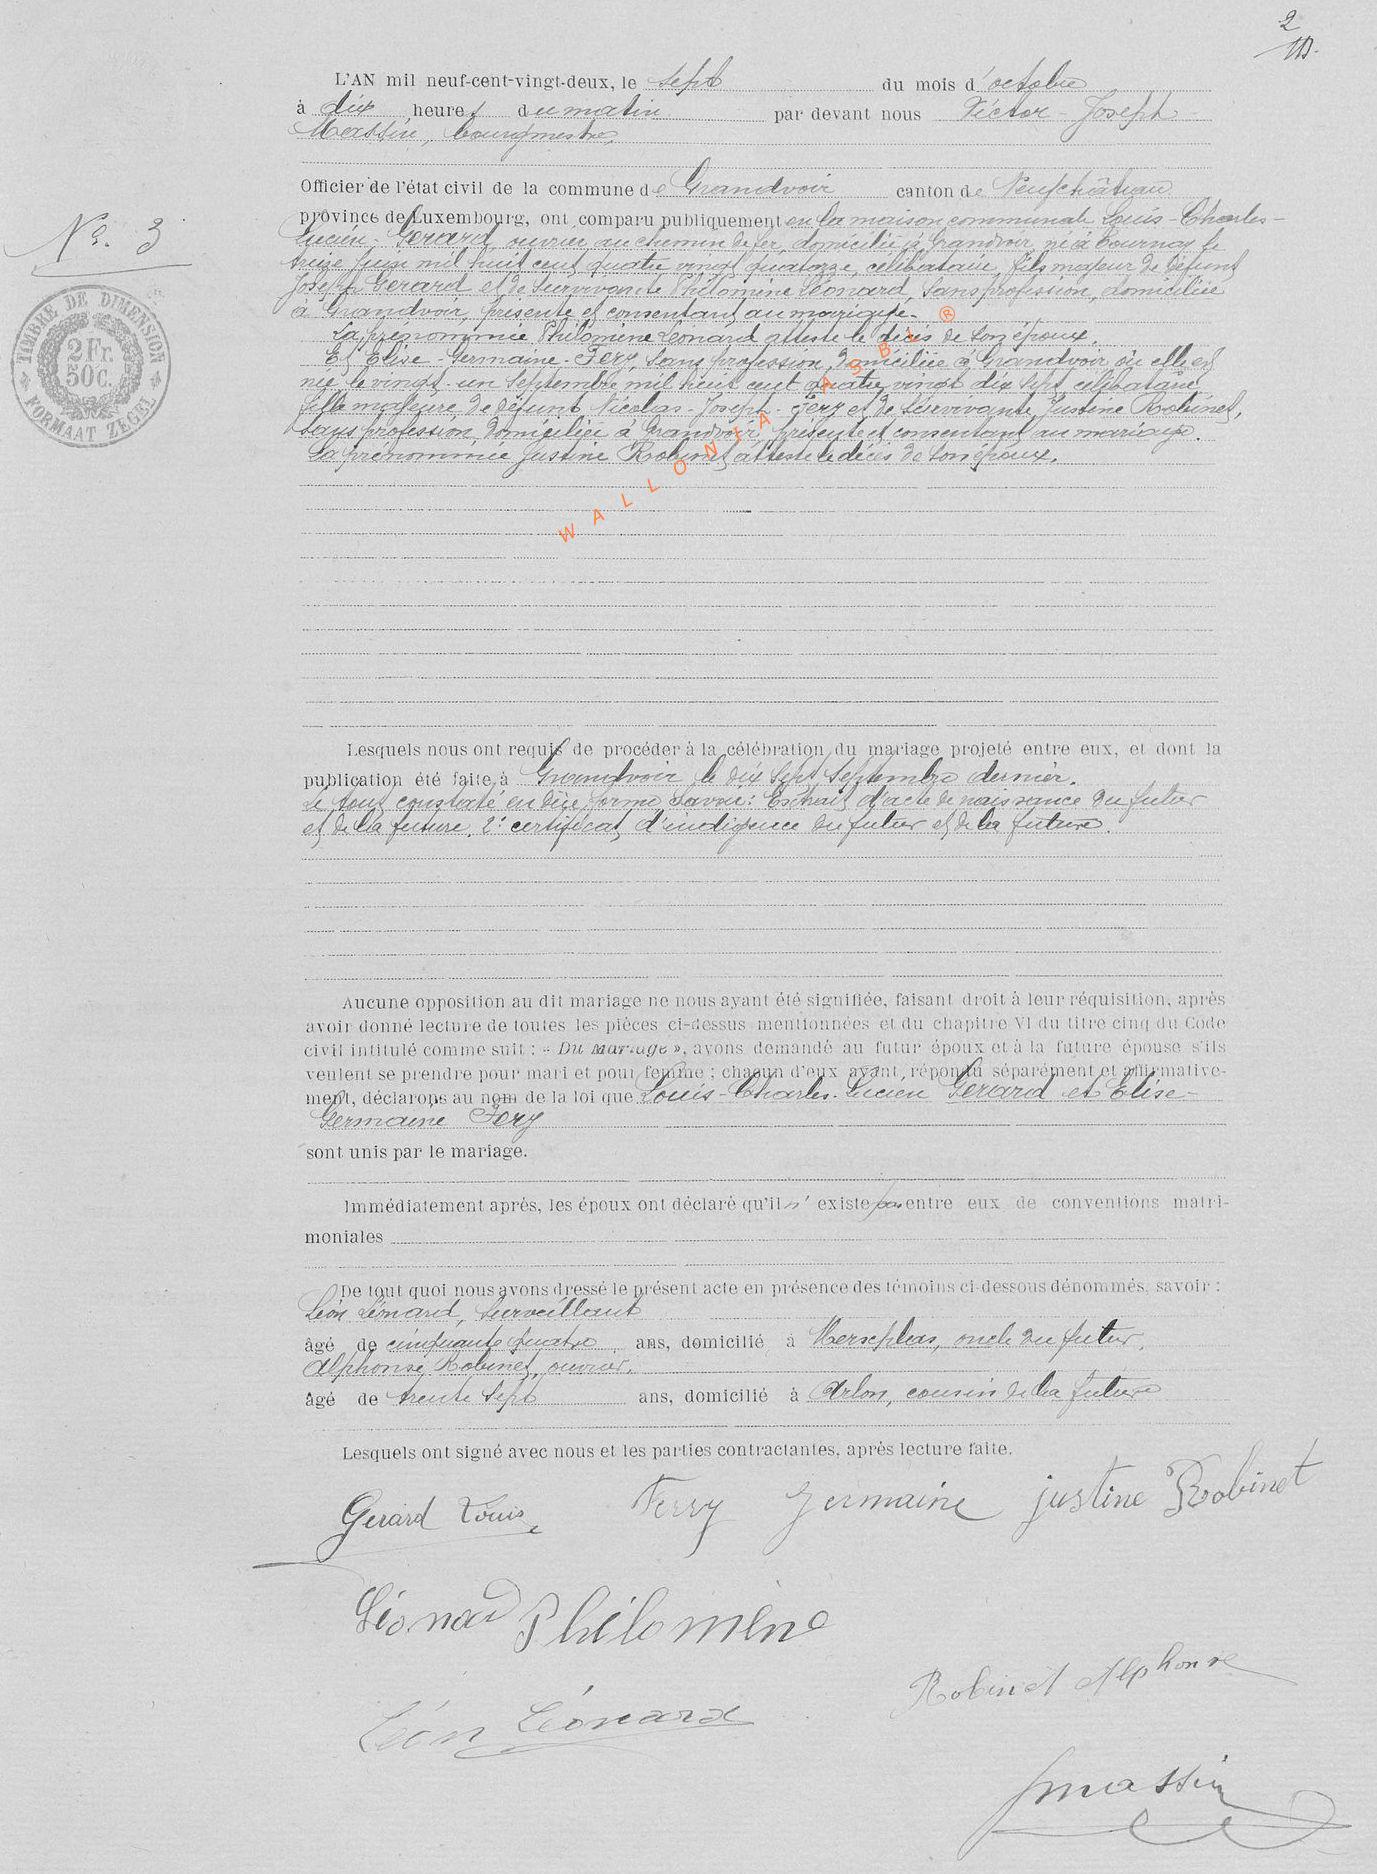 2
L'AN mil neuf-cent-vingt-deux, le sept du mois d'octobre
à dix heures du matin par devant nous Victor-Joseph
Massin, bourgmestre,
Officier de l'état civil de la commune de Grandvoir canton de Neufchâteau
province de Luxembourg, ont comparu publiquement en la maison communale Louis-Charles-
Lucien Gerard, ouvrier au chemin de fer, domicilié à Grandvoir, né à Tournay le
treize Juin mil huit cent quatre vingt quatorze, célibataire, fils majeur de défunt
Joseph Gerard et de survivante Philomène Léonard, sans profession, domiciliée
à Grandvoir, présente et consentant au mariage.
La prénommée Philomène Léonard atteste le décès de son époux.
Et Elise-Germaine-Fery, sans profession, domiciliée à Grandvoir, où elle est
née le vingt-un Septembre mil huit cent quatre vingt dix sept, célibataire,
fille majeure de défunt Nicolas-Joseph-Fery et de survivante Justine Robinet,
sans profession, domiciliée à Grandvoir, présente et consentant au mariage.
La prénommée Justine Robinet atteste le décès de son époux.
WALLONIA ASBL ®
No. 3
TIMBRE DE DIMENSION
2 Fr.
50 C.
FORMAAT ZEGEL
Lesquels nous ont requis de procéder à la célébration du mariage projeté entre eux, et dont la
publication été faite à Grandvoir le dix sept Septembre dernier.
Le tout constaté en due forme savoir: Extrait d'acte de naissance du futur
et de la future. 2° certificat d'indigence du futur et de la future.
Aucune opposition au dit mariage ne nous ayant été signifiée, faisant droit à leur réquisition, après
avoir donné lecture de toutes les pièces ci-dessus mentionnées et du chapitre VI du titre cinq du Code
civil intitulé comme suit : « Du Mariage », avons demandé au futur époux et à la future épouse s'ils
veulent se prendre pour mari et pour femme ; chacun d'eux ayant répondu séparément et affirmative-
ment, déclarons au nom de la loi que Louis-Charles-Lucien Gerard et Elise-
Germaine Fery
sont unis par le mariage.
Immédiatement après, les époux ont déclaré qu'il n'existe pas entre eux de conventions matri-
moniales
De tout quoi nous avons dressé le présent acte en présence des témoins ci-dessous dénommés, savoir :
Léon Léonard, surveillant
âgé de cinquante quatre ans, domicilié à Merxplas, oncle du futur,
Alphonse Robinet, ouvrier,
âgé de trente sept ans, domicilié à Arlon, cousin de la future
Lesquels ont signé avec nous et les parties contractantes, après lecture faite.
Gerard Louis Ferry Germaine justine Robinet
Léonard Philomène
Robinet Alphonse
Léon Léonard
Massin